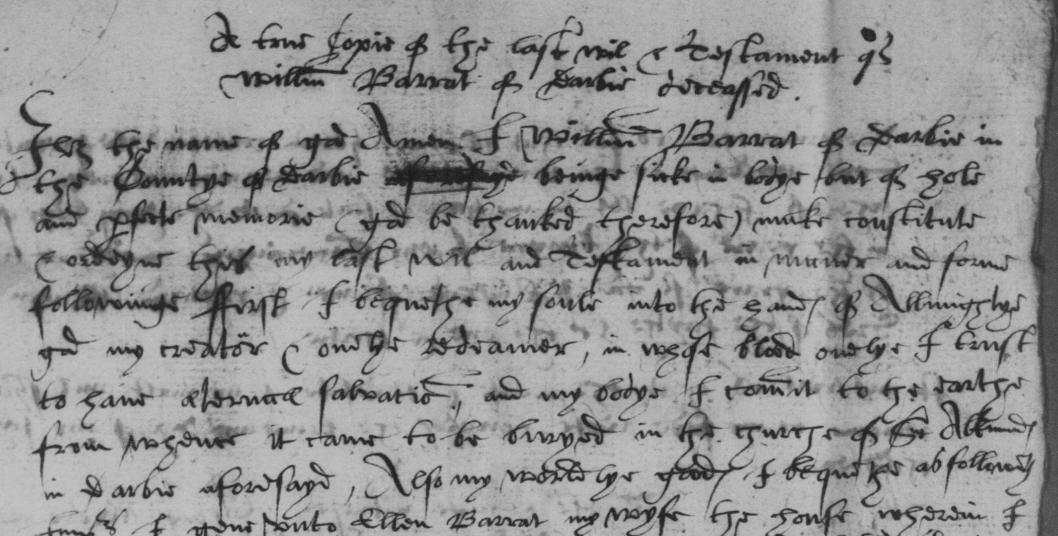 A true Copie of the last wil & Testament of
Willm Barrat of Darbie deceassed.
In the name of god Amen I Willm Barrat of Darbie in
the Countye of Darbie beinge sicke in bodye but of hole
and pfecte memorie (god be thanked therefore) make constitute
& ordeyne this my last wil and Testament in maner and forme
followinge ffirst I bequethe my soule into the hands of Allmightye
god my creator & onelye redeamer, in whose blood onelye I trust
to have aeternall salvatio, and my bodye I comit to the earthe
from whence it came to be buryed in the churche of St Alkmunds
in Darbie aforesayd, Also my worldlye goods I bequethe as followeth
I geve unto Ellen Barrat my wyfe the house wherein I